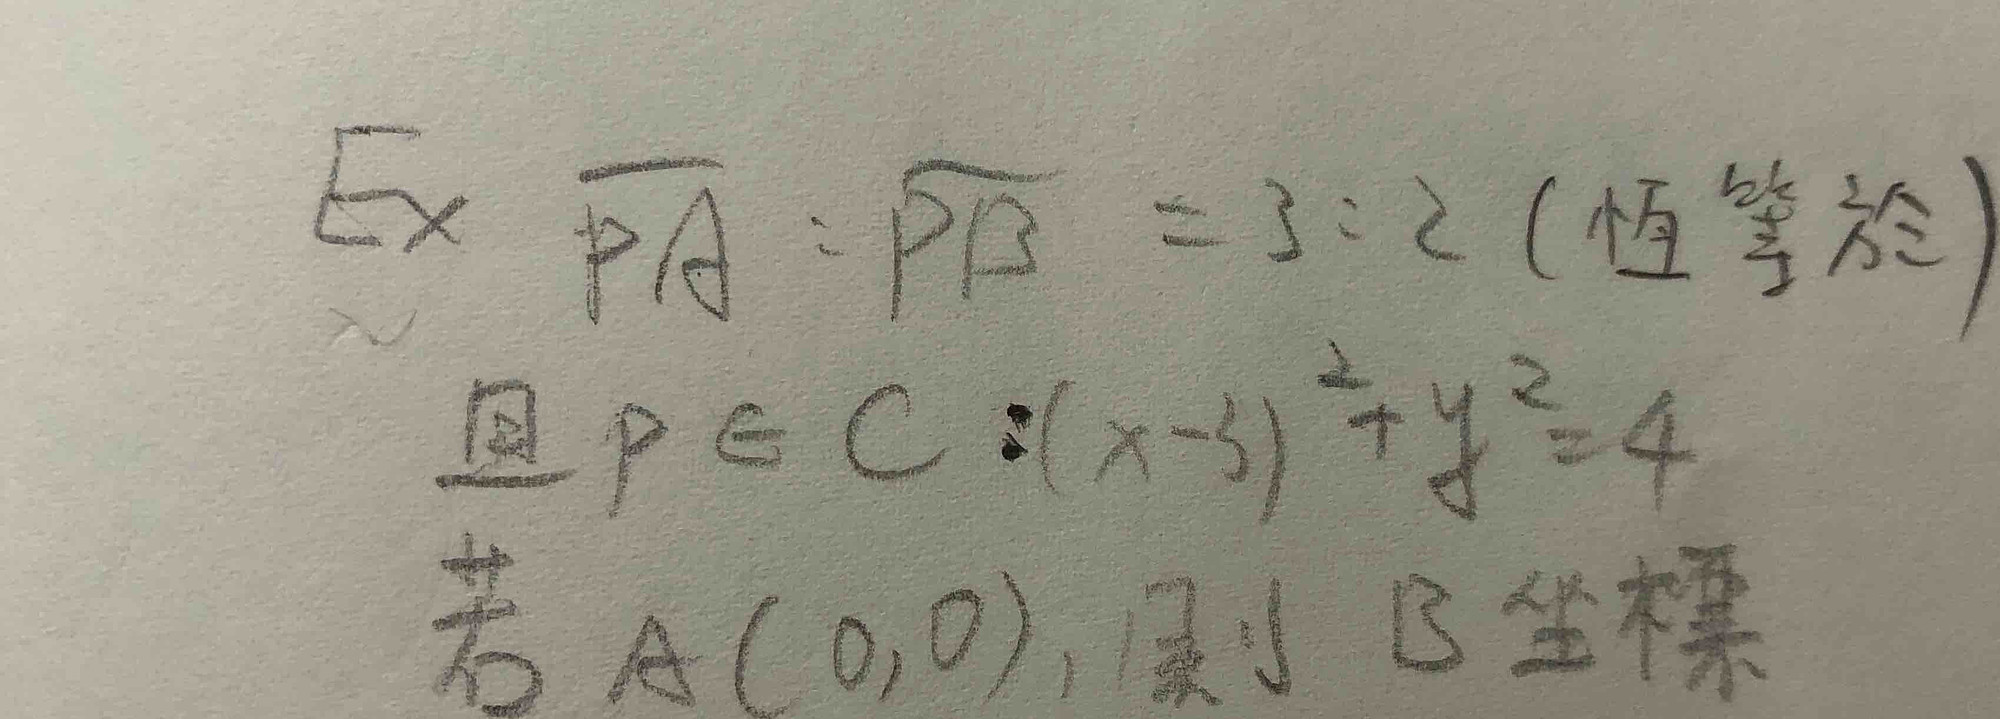 Ex PA : PB = 3 : 2 (恆等於)
且 P ∈ C : (x-3)² + y² = 4
若 A(0,0), 則 B 坐標